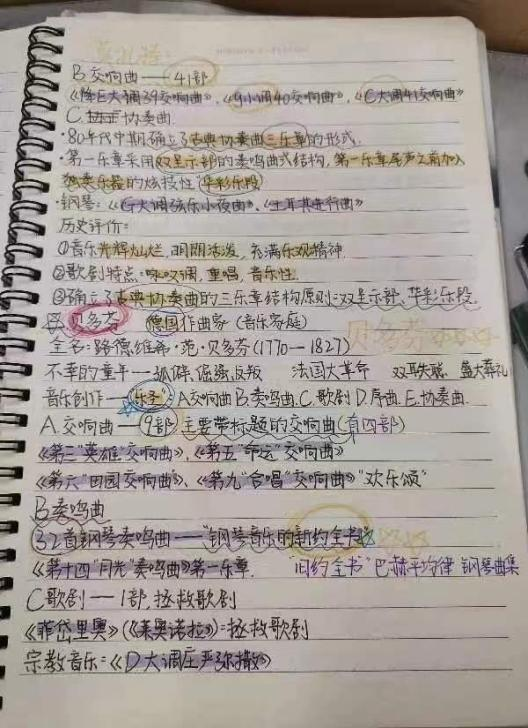 莫扎特:
B交响曲——41部
《降E大调39交响曲》、《g小调40交响曲》、《C大调41交响曲》
C.协奏曲.
·80年代中期确立了古典协奏曲三乐章的形式.
·第一乐章采用双呈示部的奏鸣曲式结构,第一乐章尾声之前加入
独奏乐器的炫技性"华彩乐段)
·钢琴:《G大调弦乐小夜曲》、《土耳其进行曲》
历史评价:
①音乐光辉灿烂,明朗活泼,充满乐观精神.
②歌剧特点:咏叹调,重唱,音乐性.
③确立了古典协奏曲的三乐章结构原则:双呈示部、华彩乐段.
贝多芬 德国作曲家(音乐家庭)
贝多芬
全名:路德维希·范·贝多芬(1770—1827)
不幸的童年—孤僻,倔强,反叛 法国大革命 双耳失聪、盛大葬礼
音乐创作—"乐圣":A交响曲B.奏鸣曲.C.歌剧D.序曲.E.协奏曲.
A.交响曲—9部 主要带标题的交响曲(有四部)
《第三"英雄"交响曲》、《第五"命运"交响曲》
《第六"田园交响曲》、《第九"合唱"交响曲》"欢乐颂"
B奏鸣曲
32首钢琴奏鸣曲——"钢琴音乐的新约全书"
《第十四"月光"奏鸣曲》第一乐章. "旧约全书"巴赫平均律 钢琴曲集
C歌剧——1部,拯救歌剧
《菲岱里奥》(《莱奥诺拉》)=拯救歌剧
宗教音乐:《D大调庄严弥撒》